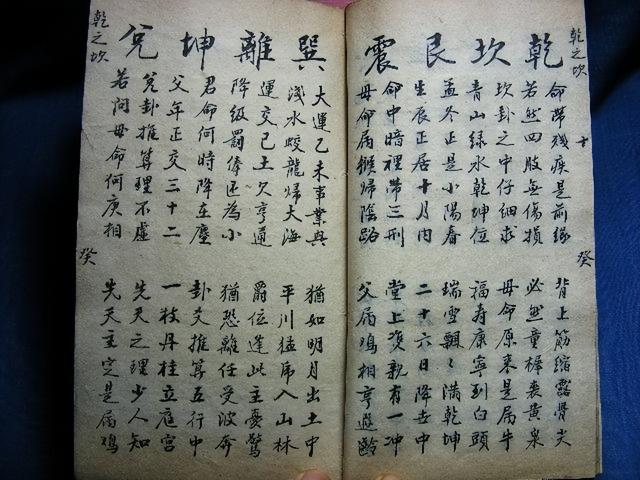 乾之坎
十
癸
乾坎艮震
命帶殘疾是前緣 背上筋縮露骨尖
若然四肢無傷損 必然童樨喪黃泉
坎卦之中仔細求 母命原來是屬牛
青山綠水乾坤位 福壽康寧到白頭
孟冬正是小陽春 瑞雪飄々滿乾坤
生辰正居十月內 二十六日降世中
命中暗裡帶三刑 堂上雙親有一冲
母命屬猴歸陰路 父屬鸡相享遐齡
巽離坤兌
大運乙未事業興 猶如明月出土中
淺水蛟龍歸大海 平川猛虎入山林
運交己土欠亨通 爵位逢此主憂驚
降級罰俸还為小 猶恐離任受波奔
君命何時降在塵 卦爻推算五行中
父年正交三十二 一枝丹桂立庭宮
兌卦推算理不虛 先天之理少人知
若問母命何庚相 先天主定是屬鸡
乾之坎
癸